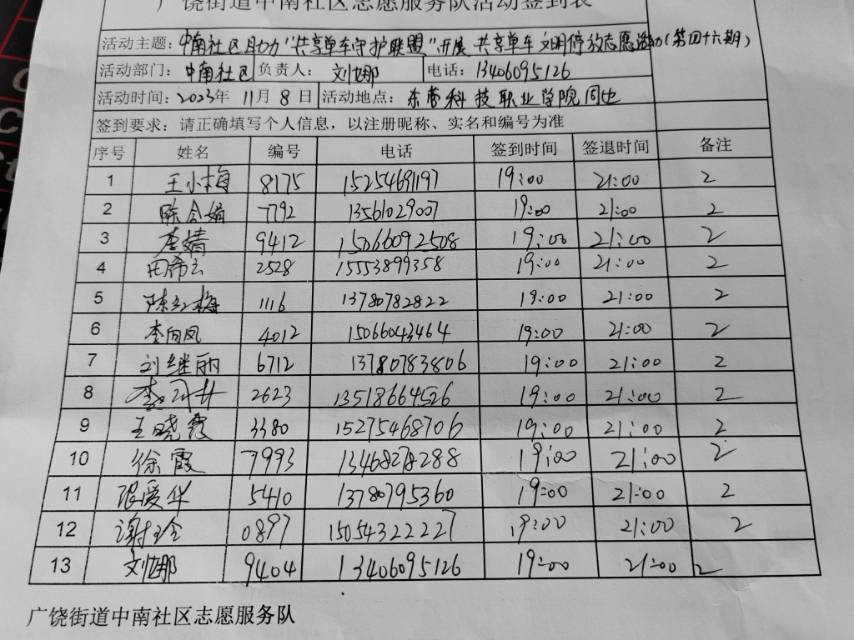 广饶街道中南社区志愿服务队活动签到表
活动主题: 中南社区助力"共享单车守护联盟"开展 共享单车 文明停放志愿活动(第四十六期)
活动部门: 中南社区 负责人: 刘娜 电话: 13406095126
活动时间: 2023年 11月 8日 活动地点: 东营科技职业学院周边
签到要求: 请正确填写个人信息, 以注册昵称、实名和编号为准
序号 姓名 编号 电话 签到时间 签退时间 备注
1 王小梅 8175 15254691197 19:00 21:00 2
2 陈合娟 7792 13561029007 19:00 21:00 2
3 李婧 9412 15066092508 19:00 21:00 2
4 田希云 2528 15553899358 19:00 21:00 2
5 陈红梅 1116 13780782822 19:00 21:00 2
6 李向凤 4012 15066043464 19:00 21:00 2
7 刘继丽 6712 13780783806 19:00 21:00 2
8 2623 13518664526 19:00 21:00 2
9 王晓霞 3380 15275468706 19:00 21:00 2
10 徐霞 7993 13468278288 19:00 21:00 2
11 张爱华 5410 13780795360 19:00 21:00 2
12 谢玉玲 0897 15054322227 19:00 21:00 2
13 刘娜 9404 13406095126 19:00 21:00 2
广饶街道中南社区志愿服务队